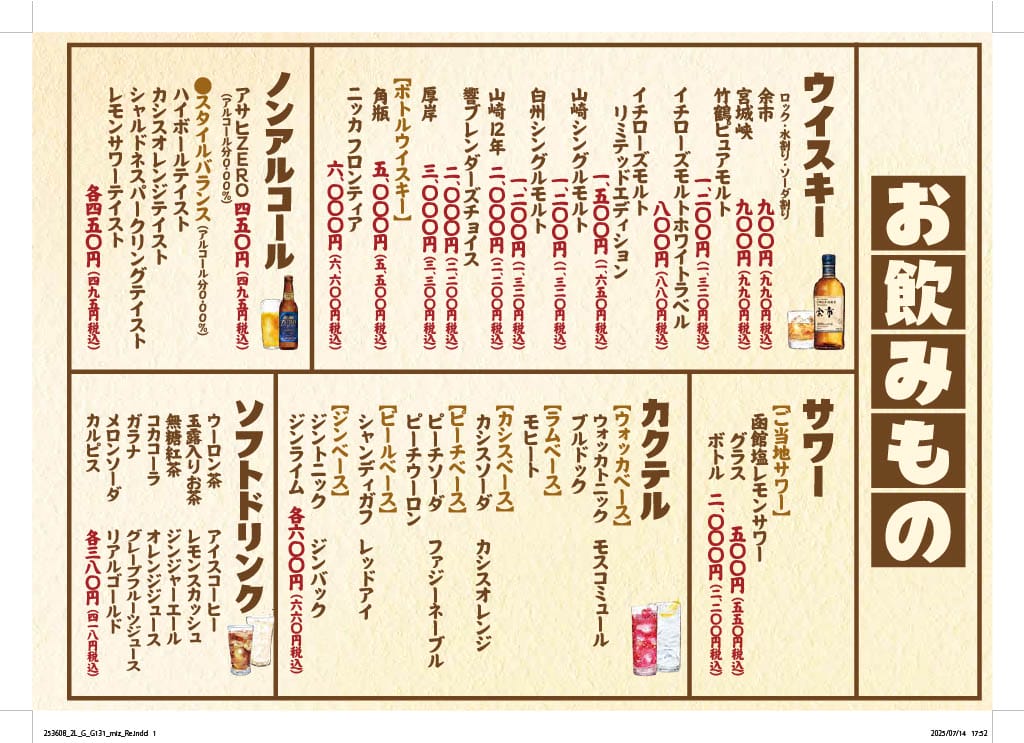 お飲みもの
ウイスキー
ロック・水割り・ソーダ割り
余市
九〇〇円（九九〇円税込）
宮城峡
九〇〇円（九九〇円税込）
竹鶴ピュアモルト
一、二〇〇円（一、三二〇円税込）
イチローズモルトホワイトラベル
八〇〇円（八八〇円税込）
イチローズモルト
リミテッドエディション
一、五〇〇円（一、六五〇円税込）
山崎シングルモルト
一、二〇〇円（一、三二〇円税込）
白州シングルモルト
一、二〇〇円（一、三二〇円税込）
山崎12年
二、〇〇〇円（二、二〇〇円税込）
響ブレンダーズチョイス
二、〇〇〇円（二、二〇〇円税込）
厚岸
三、〇〇〇円（三、三〇〇円税込）
【ボトルウイスキー】
角瓶
五、〇〇〇円（五、五〇〇円税込）
ニッカフロンティア
六、〇〇〇円（六、六〇〇円税込）
ノンアルコール
アサヒZERO 四五〇円（四九五円税込）
（アルコール分0.00%）
●スタイルバランス（アルコール分0.00%）
ハイボールテイスト
カシスオレンジテイスト
シャルドネスパークリングテイスト
レモンサワーテイスト
各四五〇円（四九五円税込）
サワー
【ご当地サワー】
函館塩レモンサワー
グラス 五〇〇円（五五〇円税込）
ボトル 二、〇〇〇円（二、二〇〇円税込）
カクテル
【ウォッカベース】
ウォッカトニック モスコミュール
ブルドック
【ラムベース】
モヒート
【カシスベース】
カシスソーダ カシスオレンジ
【ピーチベース】
ピーチソーダ ファジーネーブル
ピーチウーロン
【ビールベース】
シャンディガフ レッドアイ
【ジンベース】
ジントニック ジンバック
ジンライム 各六〇〇円（六六〇円税込）
ソフトドリンク
ウーロン茶 アイスコーヒー
玉露入りお茶 レモンスカッシュ
無糖紅茶 ジンジャーエール
コカコーラ オレンジジュース
ガラナ グレープフルーツジュース
メロンソーダ リアルゴールド
カルピス 各三八〇円（四一八円税込）
余市
253608_2L_G_G131_miz_Re.indd 1
2025/07/14 17:52